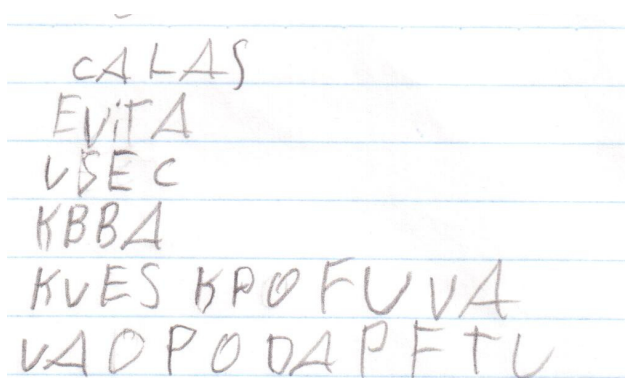 CALAS
EViTA
VSEC
KBBA
KVES KPOFUVA
VAOPODAPFTU